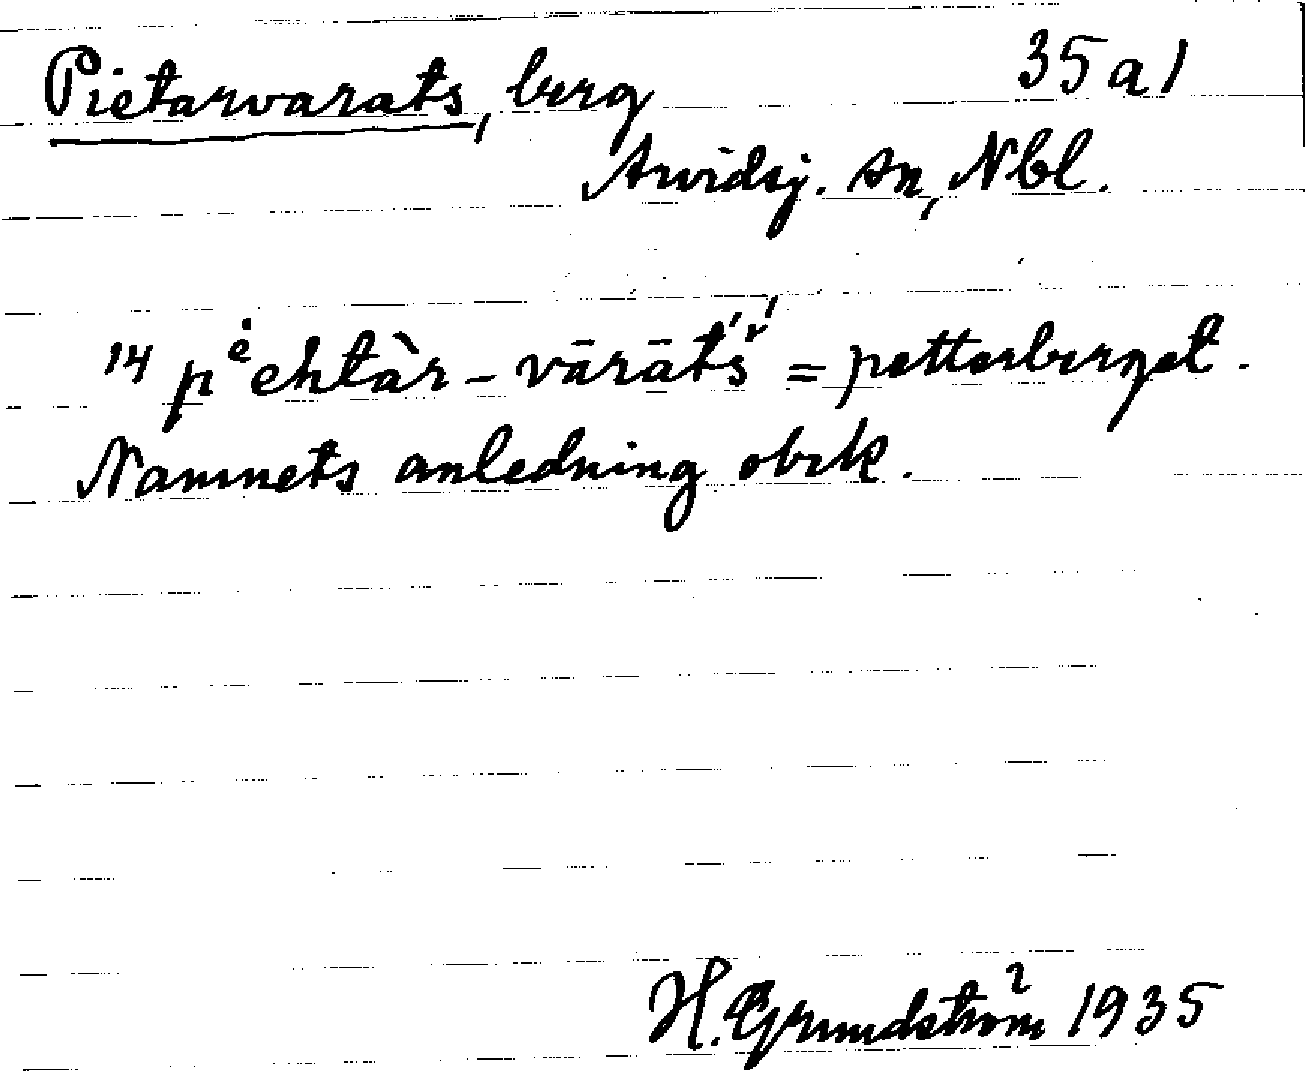 Pietarvarats, berg 35a1
Arvidsj. sn, Nbl.
14 pėehtàr-vārāt́ś = petterberget.
Namnets anledning obek.
H. Grundström 1935